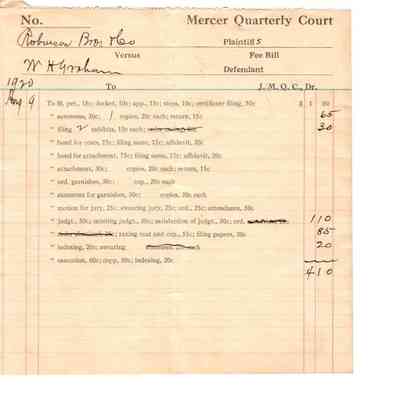 No. Mercer Quarterly Court
Robinson Bros & Co Plaintiff s
Versus Fee Bill
W H Graham Defendant
1920 To J. M. Q. C., Dr.
Aug 9 To fil. pet., 15c; docket, 10c; app., 15c; steps, 10c; certificate filing, 50c $ 1 00
" summons, 30c; 1 copies, 20c each; return, 15c 65
" filing 2 exhibits, 15c each; 30
" bond for costs, 75c; filing same, 15c; affidavit, 20c
" bond for attachment, 75c; filing same, 15c; affidavit, 20c
" attachment, 50c; copies, 20c each; return, 15c
" ord. garnishee, 30c; cop., 20c each
" summons for garnishee, 30c; copies, 20c each
" motion for jury, 25c; swearing jury, 25c; ord., 25c; attendance, 50c
" judgt., 50c; entering judgt., 30c; satisfaction of judgt., 30c; ord. 1 10
" taxing cost and cop., 55c; filing papers, 30c 85
" indexing, 20c; swearing each 20
" execution, 60c; copy, 30c; indexing, 20c
4 1 0